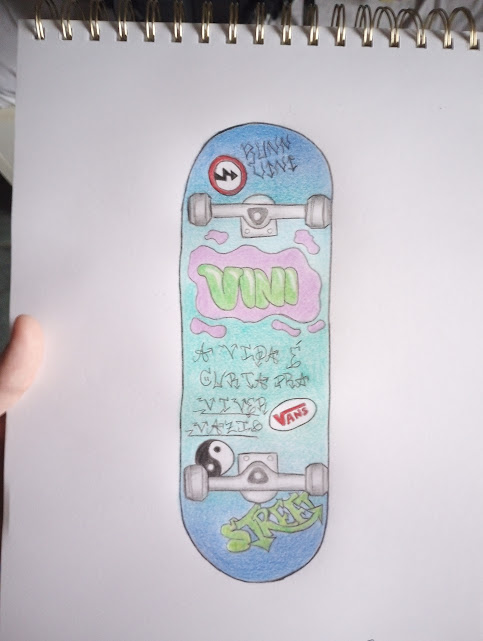 RUNN
VINI
VINI
A VIDA É
CURTA PRA
VIVER
VAZIO
VANS
STREE